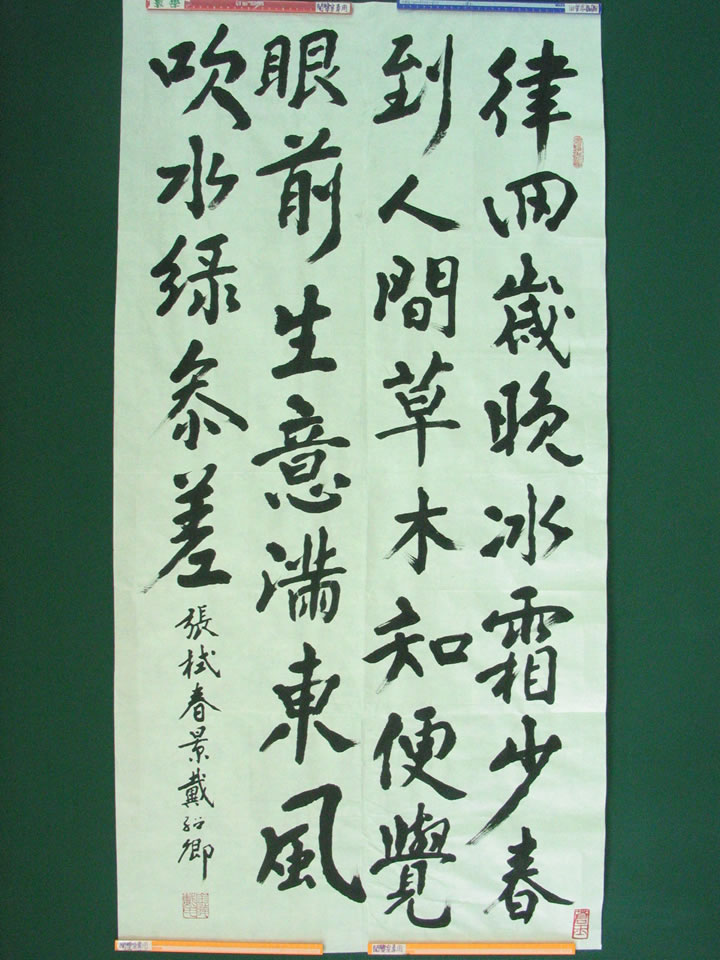 律回歲晚冰霜少春
到人間草木知便覺
眼前生意滿東風
吹水綠參差
張栻春景戴紹卿